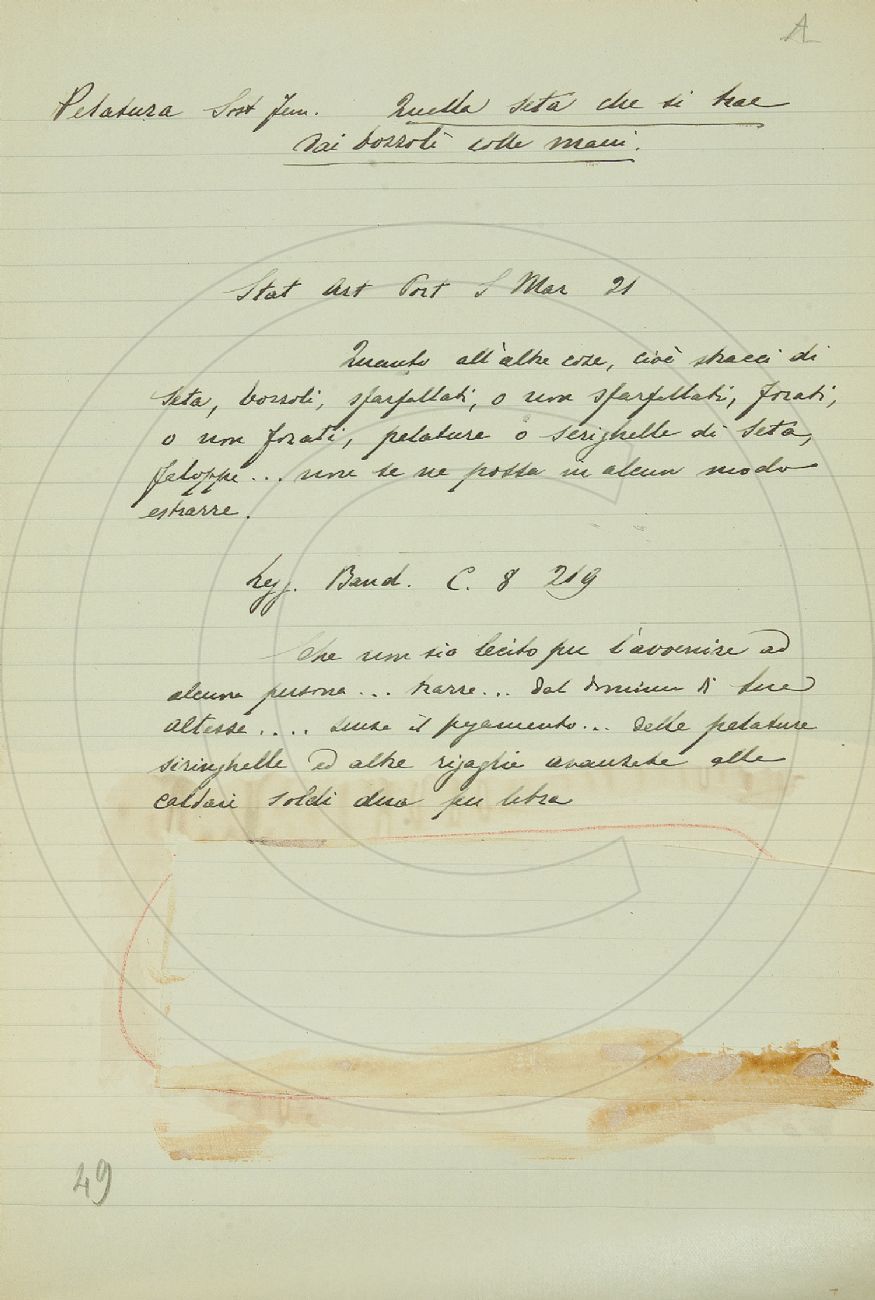 A
Pelatura Sost fem. Quella seta che si trae
dai bozzoli colle mani.
Stat Art Port S Mar 21
Quanto all'altre cose, cioè stracci di
seta, bozzoli, sfarfallati, o non sfarfallati, forati,
o non forati, pelature o serighelle di seta,
faloppe... non se ne possa in alcun modo
estrarre.
Legg. Band. C. 8 219
Che non sia lecito per l'avvenire ad
alcuna persona... trarre... dal dominio di Sua
Altesse.... senza il pagamento... delle pelature
siringhelle ed altre rigaglie avanzate alle
caldaie soldi dua per libra
49